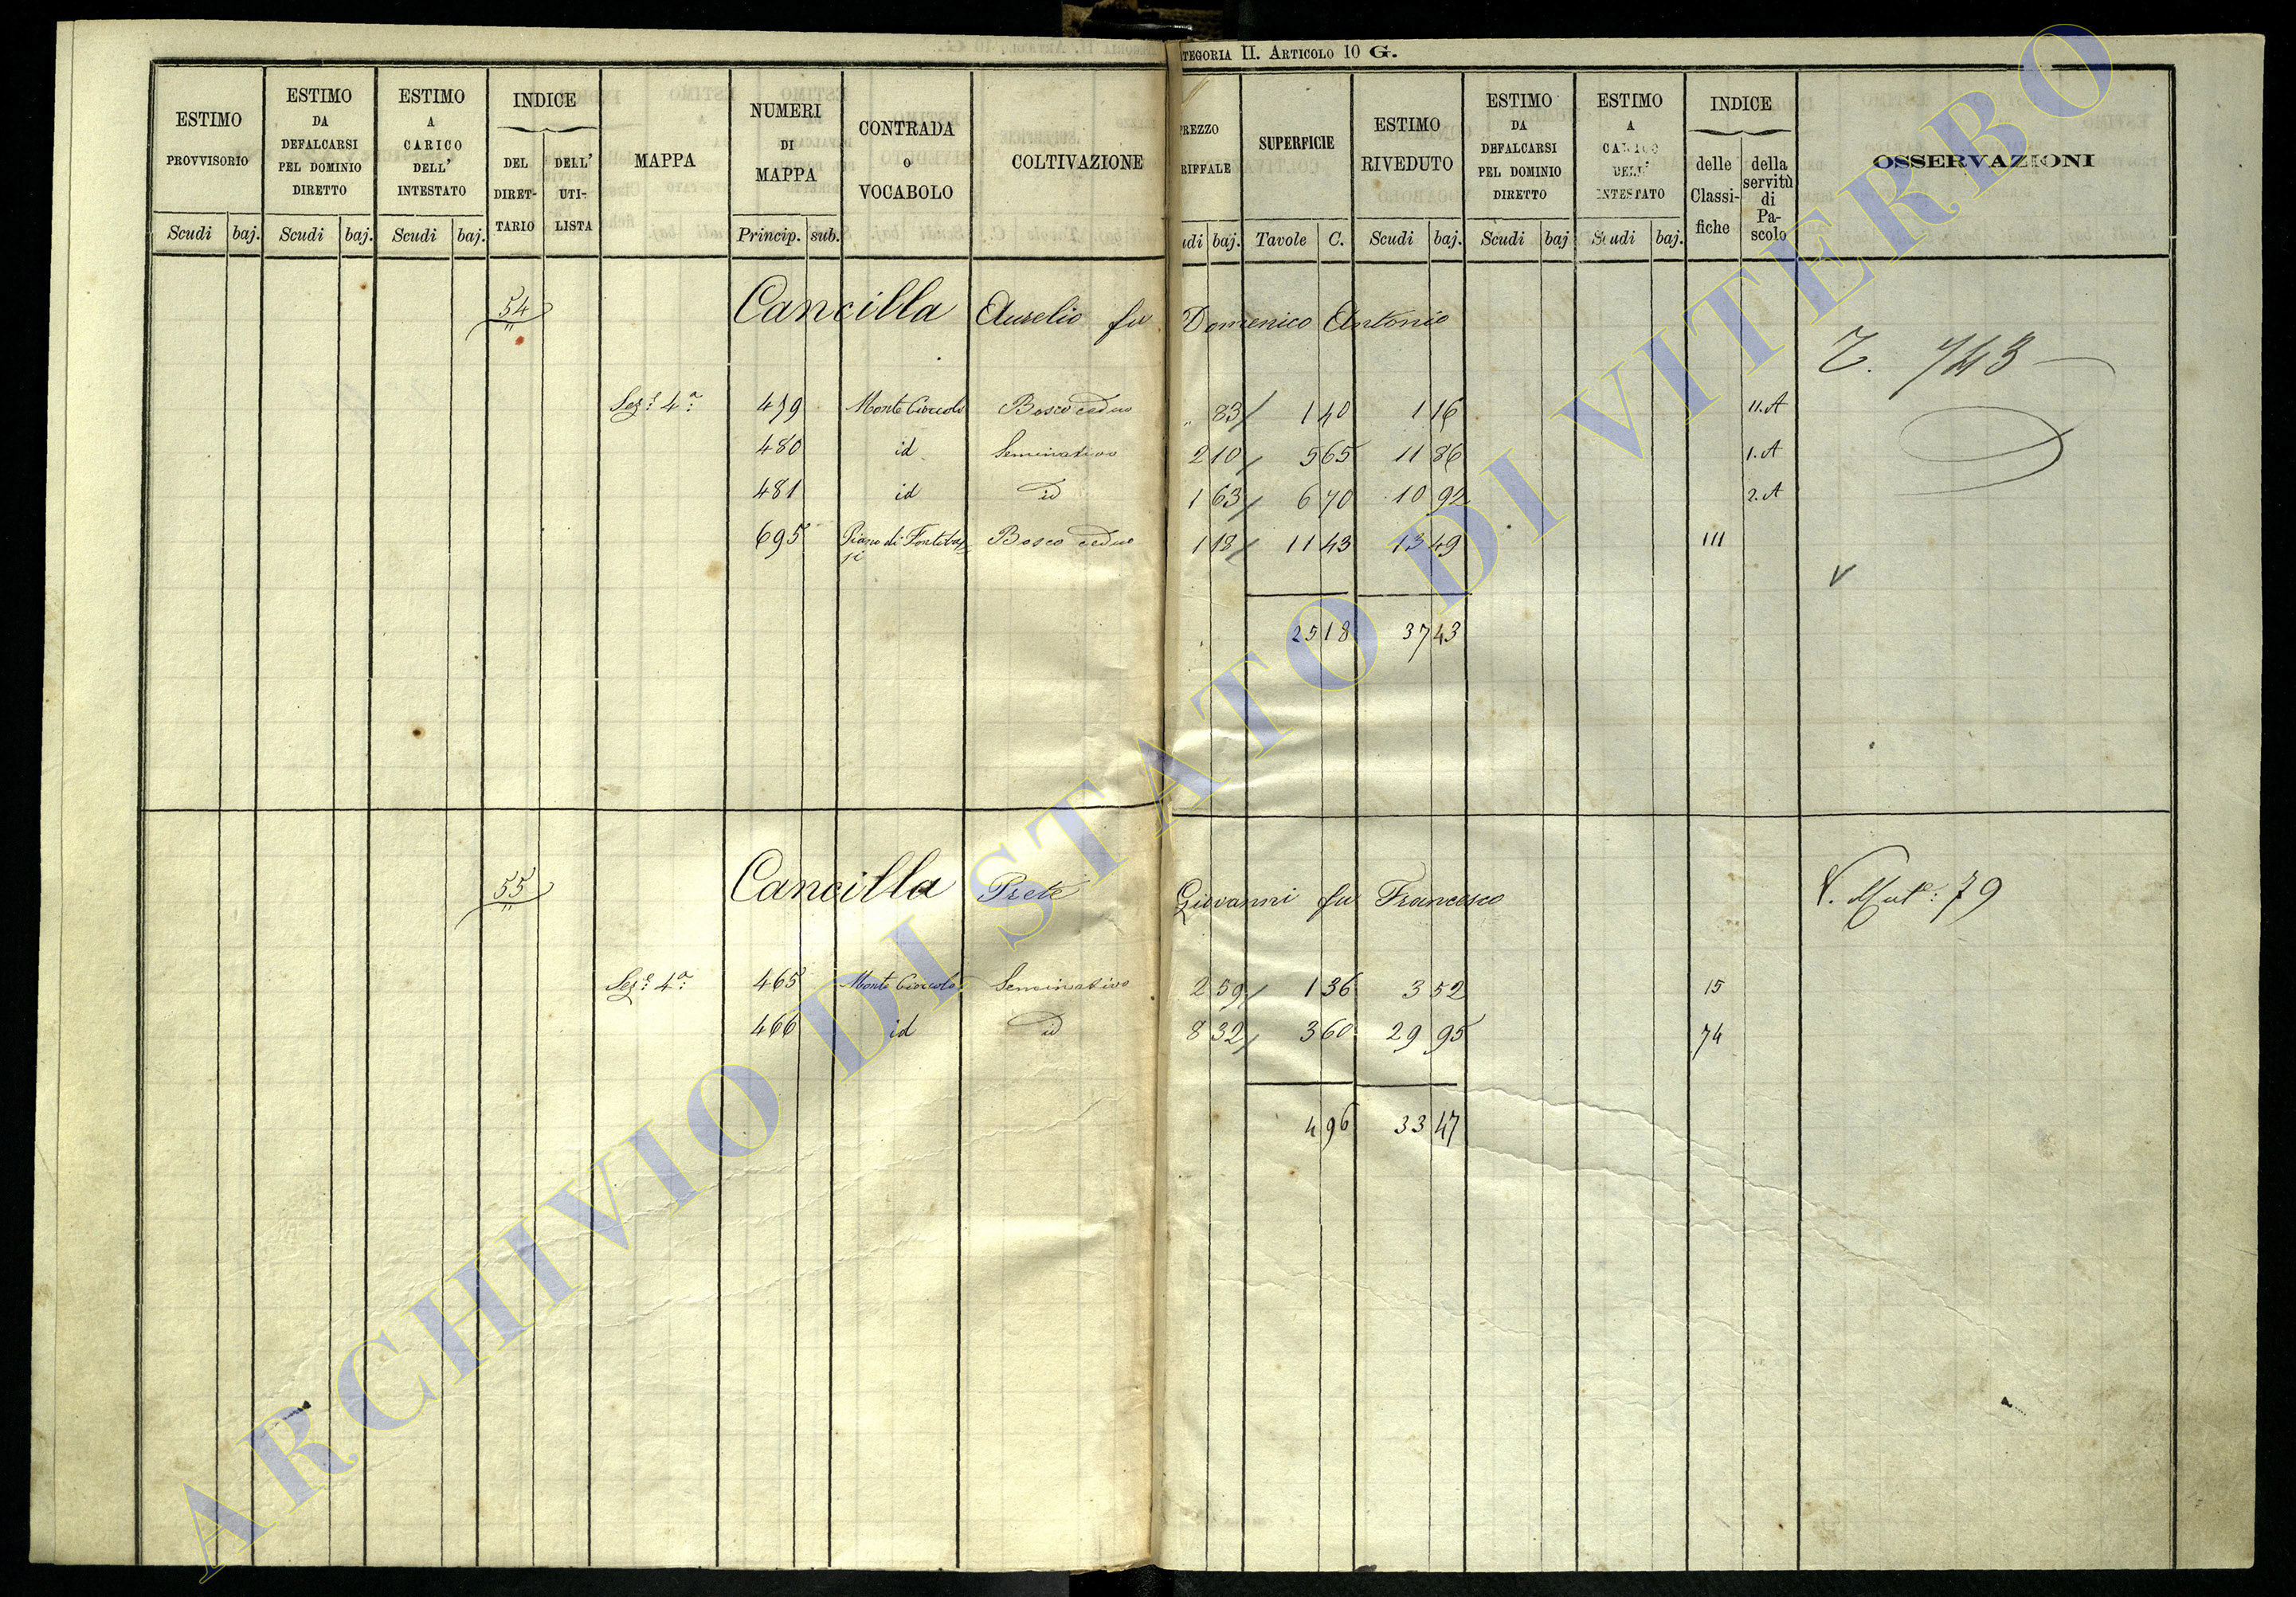 CATEGORIA II. ARTICOLO 10 G.
ESTIMO PROVVISORIO Scudi baj.
ESTIMO DA DEFALCARSI PEL DOMINIO DIRETTO Scudi baj.
ESTIMO A CARICO DELL' INTESTATO Scudi baj.
INDICE DEL DIRET-TARIO DELL' UTI-LISTA
MAPPA
NUMERI DI MAPPA Princip. sub.
CONTRADA O VOCABOLO
COLTIVAZIONE
SUPERFICIE Tavole C.
ESTIMO RIVEDUTO Scudi baj.
ESTIMO DA DEFALCARSI PEL DOMINIO DIRETTO Scudi baj
ESTIMO A CARICO DELL' INTESTATO Scudi baj.
INDICE delle Classi-fiche della servitù di Pa-scolo
OSSERVAZIONI
54 Cancilla Aurelio fu Domenico Antonio
T. 743
Sez.e 4a 479 Monte Cioccolo Bosco ceduo " 83 1 40 1 16 11.A
480 id Seminativo 2 10 5 65 11 86 1.A
481 id id 1 63 6 70 10 92 2.A
695 Bosco ceduo 1 18 11 43 13 49 111
V
25 18 37 43
55 Cancilla Prete Giovanni fu Francesco
Sez.e 4a 465 Monte Cioccolo Seminativo 2 59 1 36 3 52 15
466 id id 8 32 3 60 29 95 74
4 96 33 47
ARCHIVIO DI STATO DI VITERBO